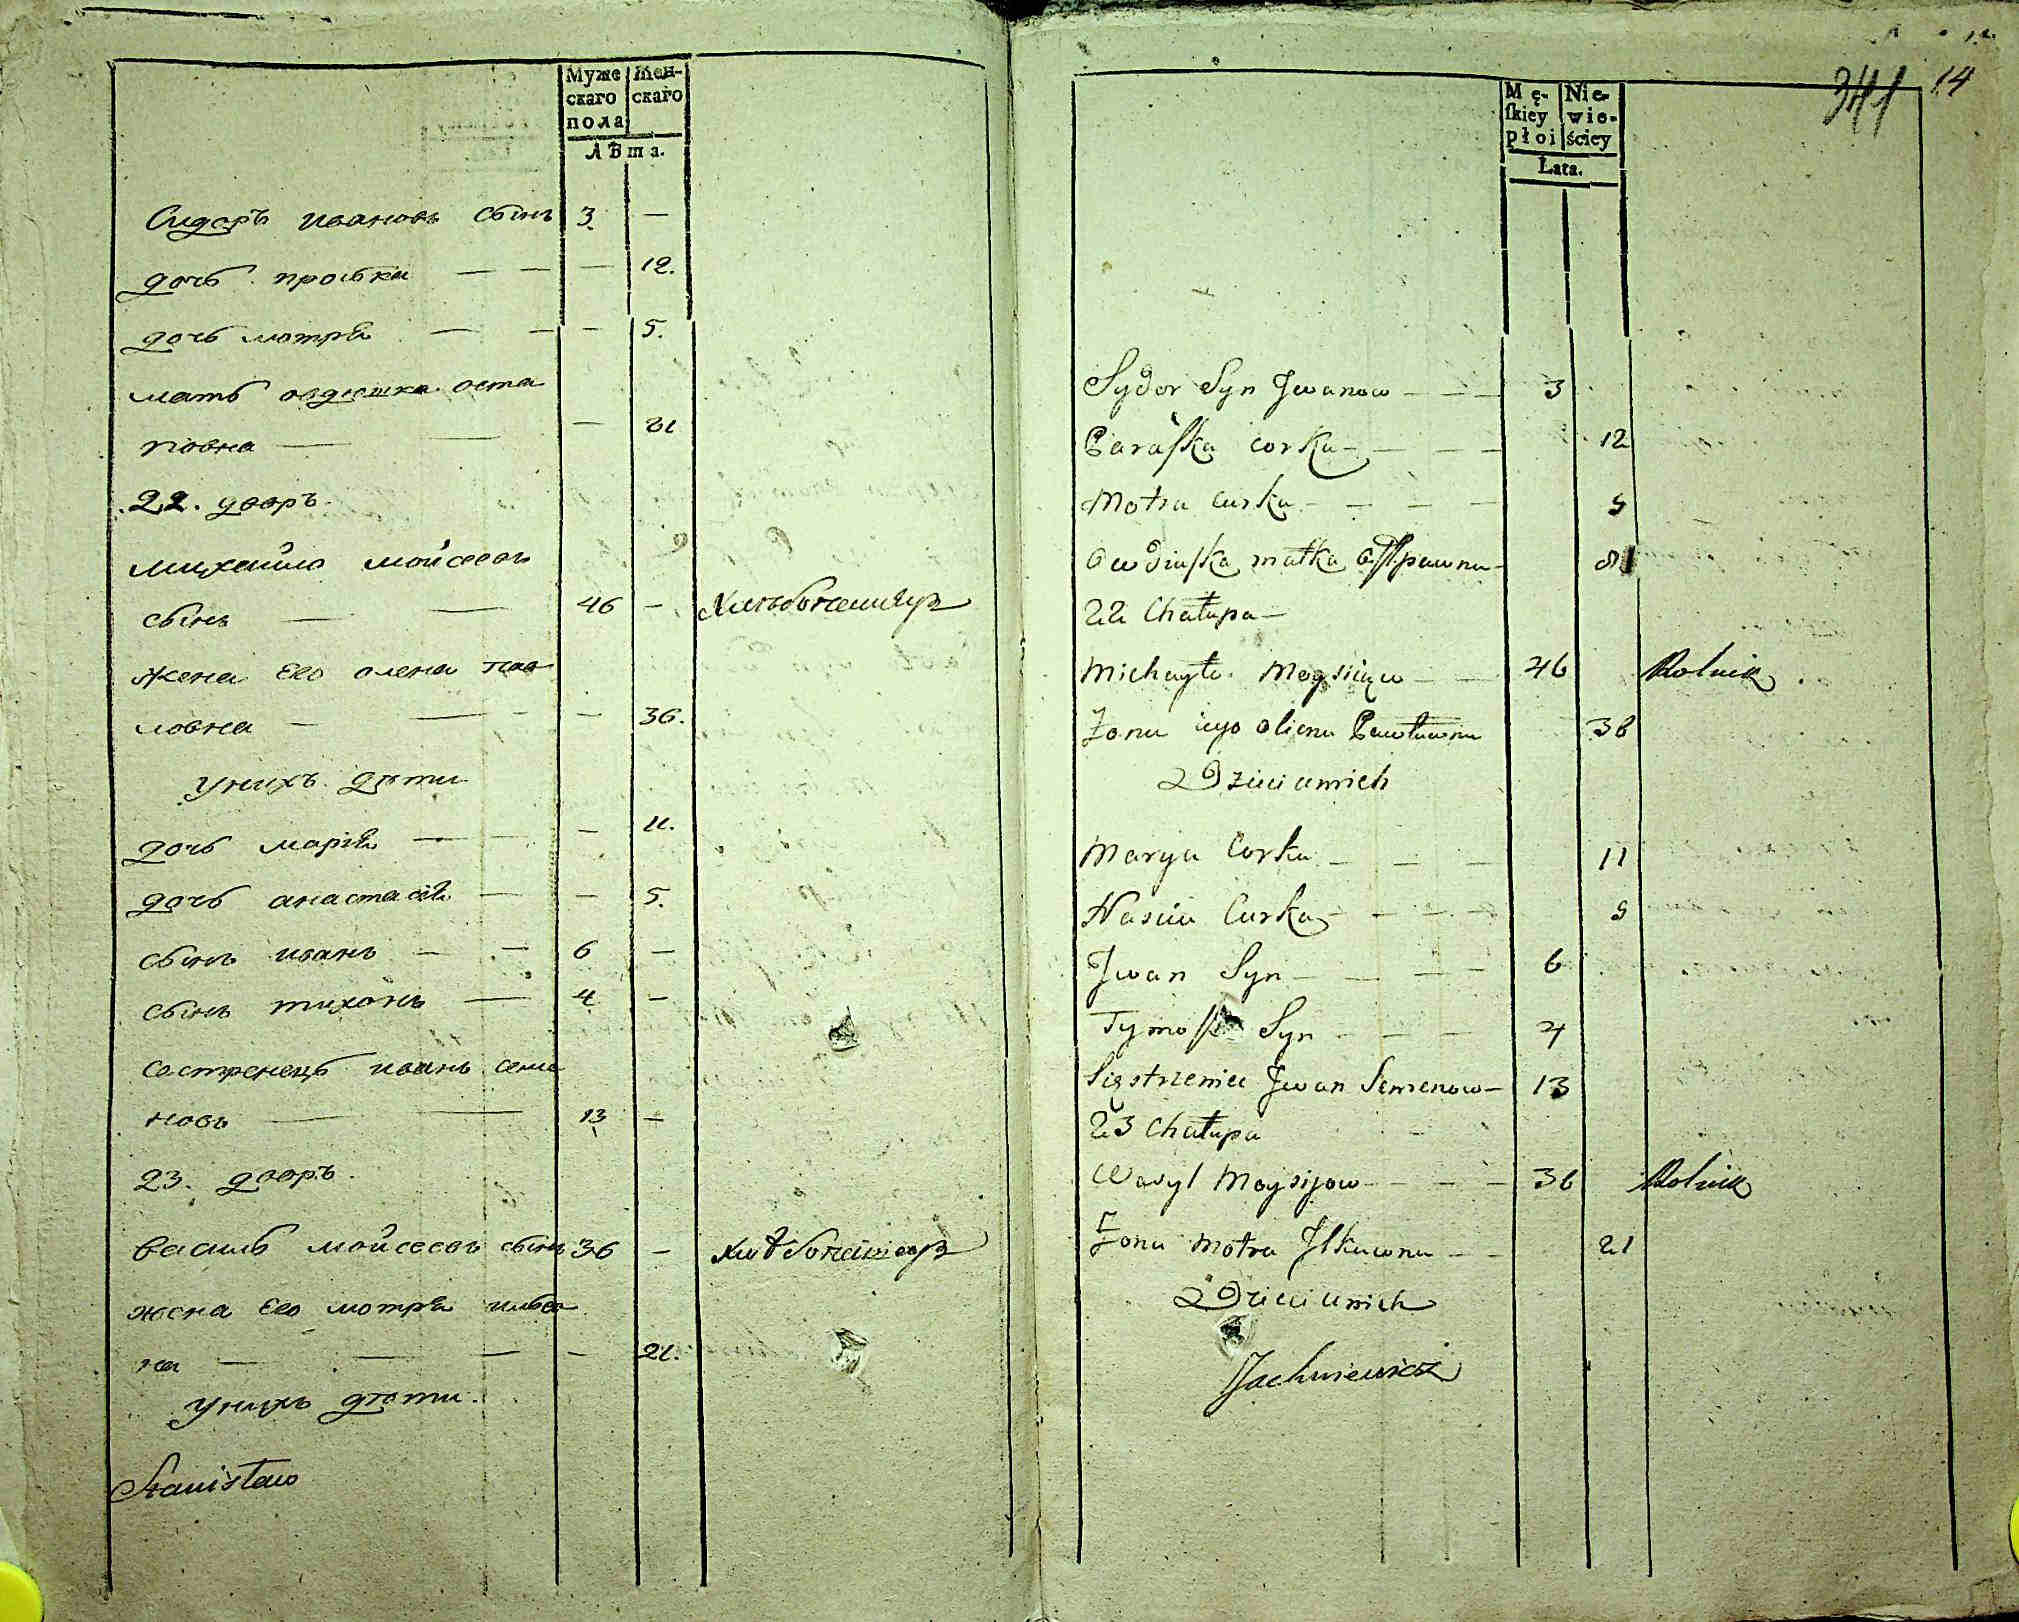 Муже Жен-
скаго скаго
пола
Лѣта.
Сидоръ ивановъ сынъ 3 —
дочь проська — — — 12.
дочь мотря — — — 5.
мать овдюшка оста
повна — — — 81
22. дворъ.
михайло мойсеевъ
сынъ — — 46 — Хлебопашецъ
жена Его олена пав
ловна — — — 36.
Унихъ дѣти
дочь марія — — — 11.
дочь анастасія — — 5.
сынъ иванъ — — 6 —
сынъ тихонъ — 4 —
сестренецъ иванъ семе
новъ — — 13 —
23. дворъ.
василь мойсеевъ сынъ 36 — Хлѣбопашецъ
жена Его мотря илько
на — — — — 21.
Унихъ дѣти.
Stanisław
341 14
Mę- Nie-
ſkiey wie-
płoi ściey
Lata.
Sydor Syn Jwanow — — — 3
Paraſka corka — — — 12
Motra Curka — — — — 5
Owdiuſka matka — 81
22 Chałupa —
Michayło Moysiiow — — 46 Rolnik
Żona iego Oliena Pawłowna 36
Dzieci unich
Marya Corka — — — 11
Nascia Curka — — — — 5
Jwan Syn — — — — 6
Syn — — — 4
Siestrzeniec Jwan Semenow — 13
23 Chałupa
Wasyl Moysijow — — — — 36 Rolnik
Żona Motra Jlkowna — — 21
Dzieci unich
Jachniewicz